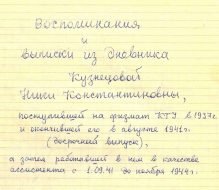 Воспоминания
и
выписки из дневника
Кузнецовой
Нины Константиновны,
поступившей на физмат КГУ в 1937г.
и окончившей его в августе 1941г.
(досрочный выпуск),
а затем работавшей в нем в качестве
ассистента с 1.09.41 до ноября 1944г.